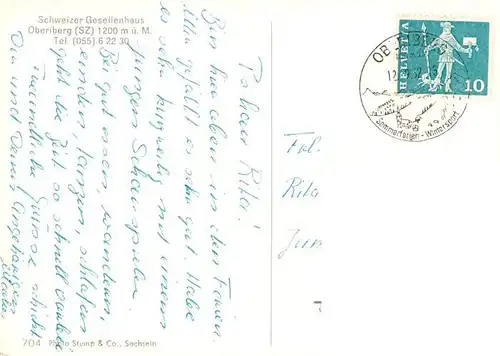 Schweizer Gesellenhaus
Oberiberg (SZ) 1200 m ü. M.
Tel. (055) 6 22 30
HELVETIA
10
Sommerferien - Wintersport
Rita!
Bin hier oben in den Ferien.
gefällt es sehr gut. Habe
es sehr kurzweilig mit einem
jungen Schauspieler.
Bei gut essen, wandern,
tanzen, schlafen
geht die Zeit so schnell vorbei
Freundliche Grüsse schickt
Dir und Deinen Angehörigen
Frl.
Rita
Jun
704 Photo Stump & Co., Sachseln